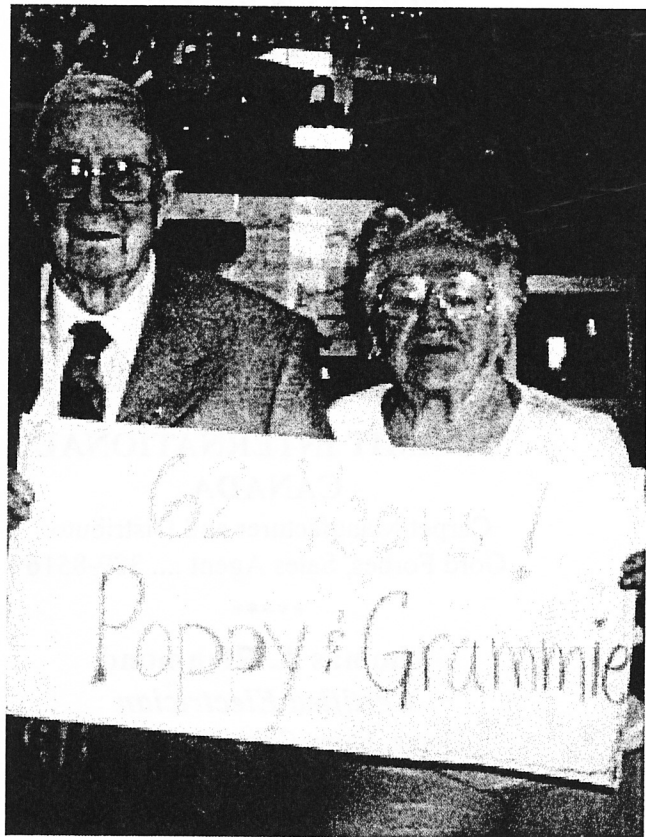 62 Years!
Poppy & Grammie